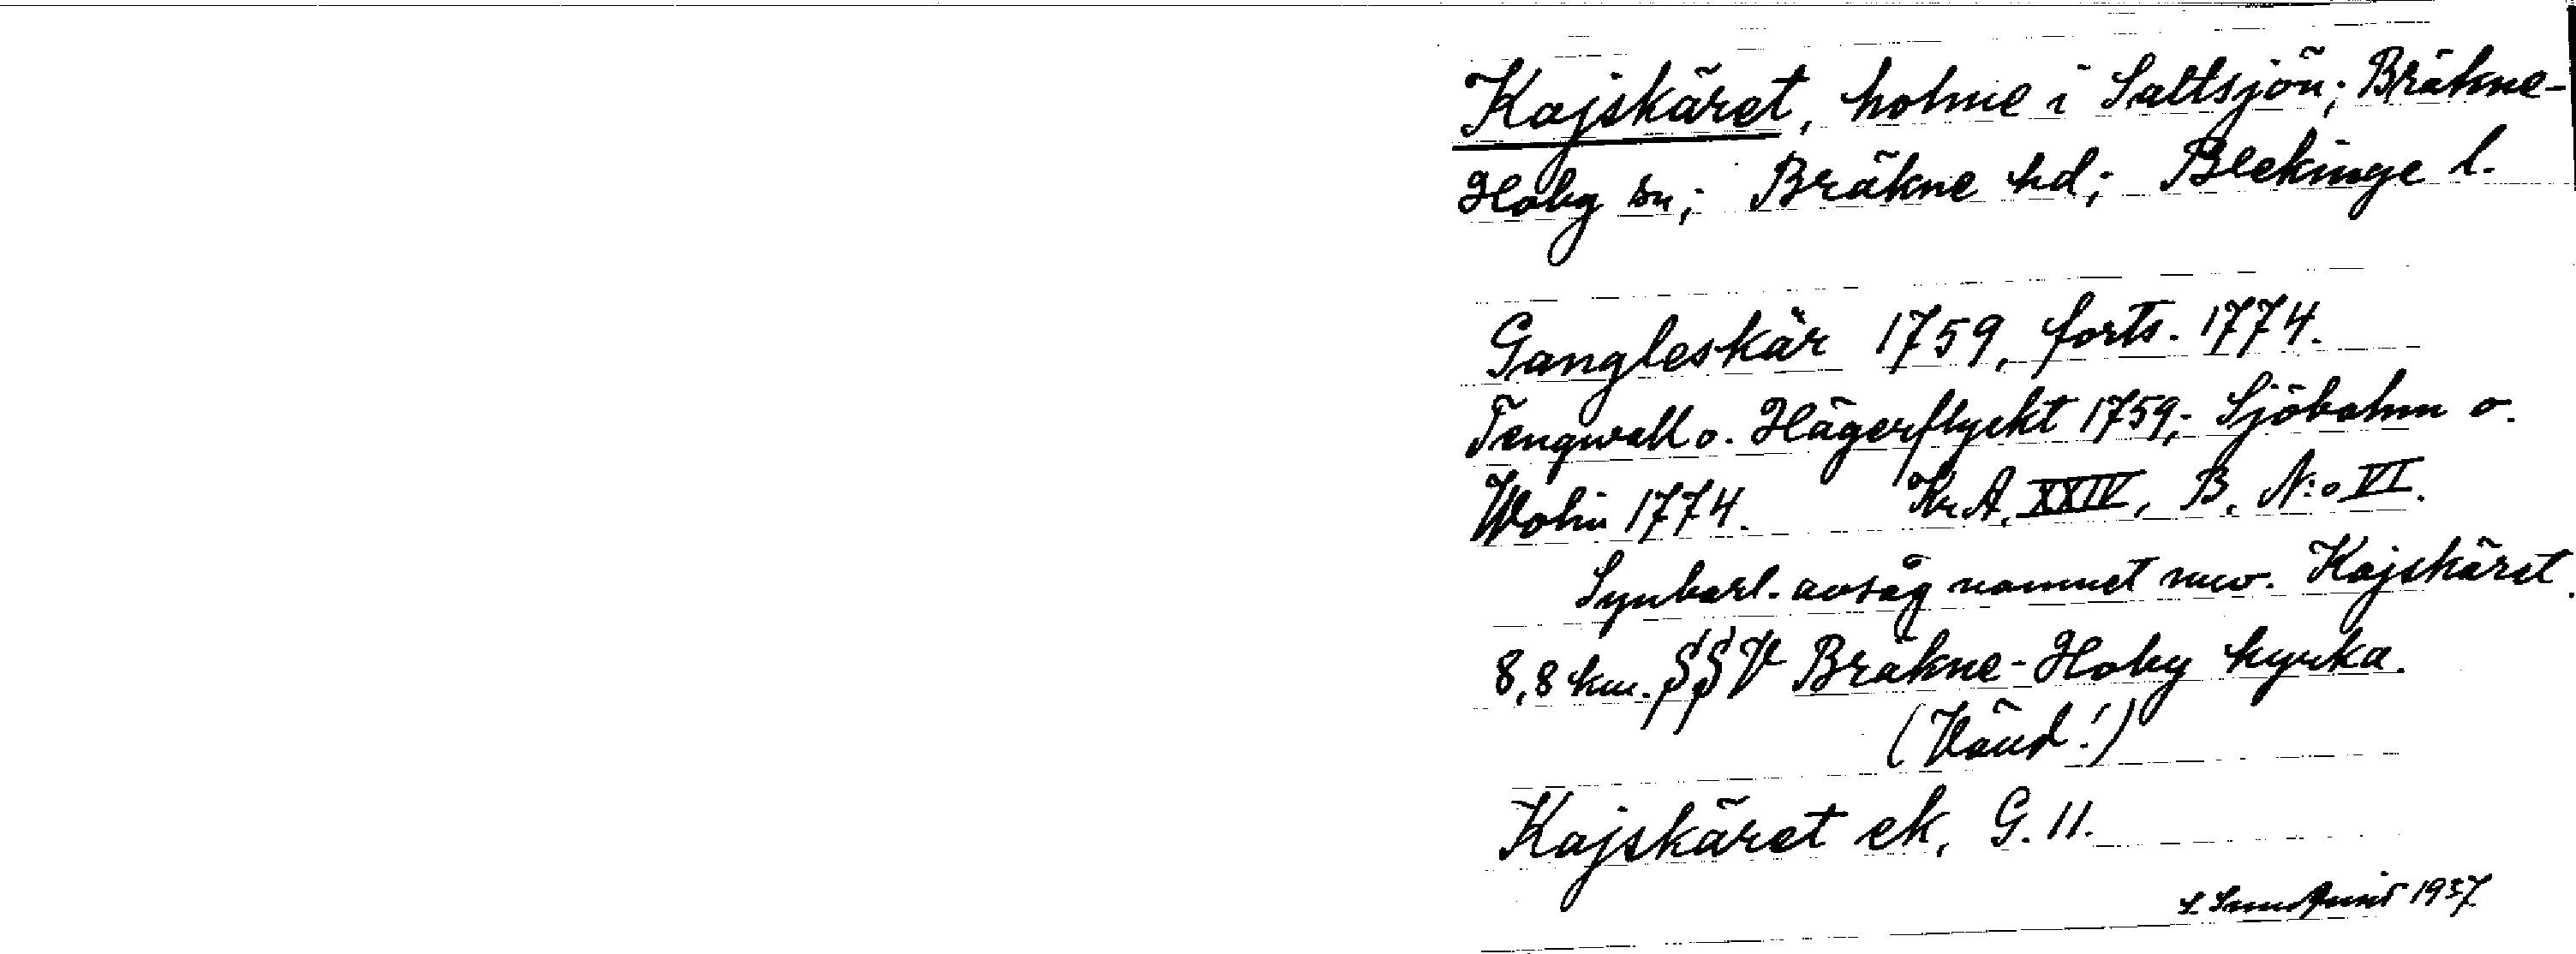 Kajskäret, holme i Saltsjön; Bräkne-
Hoby sn; Bräkne hd; Blekinge l.
Gangleskär 1759, forts. 1774.
Tengwall o. Hägerflyckt 1759; Sjöbohm o.
Wolin 1774. Kr.A. XXIV, B. N:o VI.
Synbarl. avsåg namnet nuv. Kajskäret.
8,8 km. SSV Bräkne-Hoby kyrka.
(Vänd!)
Kajskäret ek, G. 11.
S. 1937